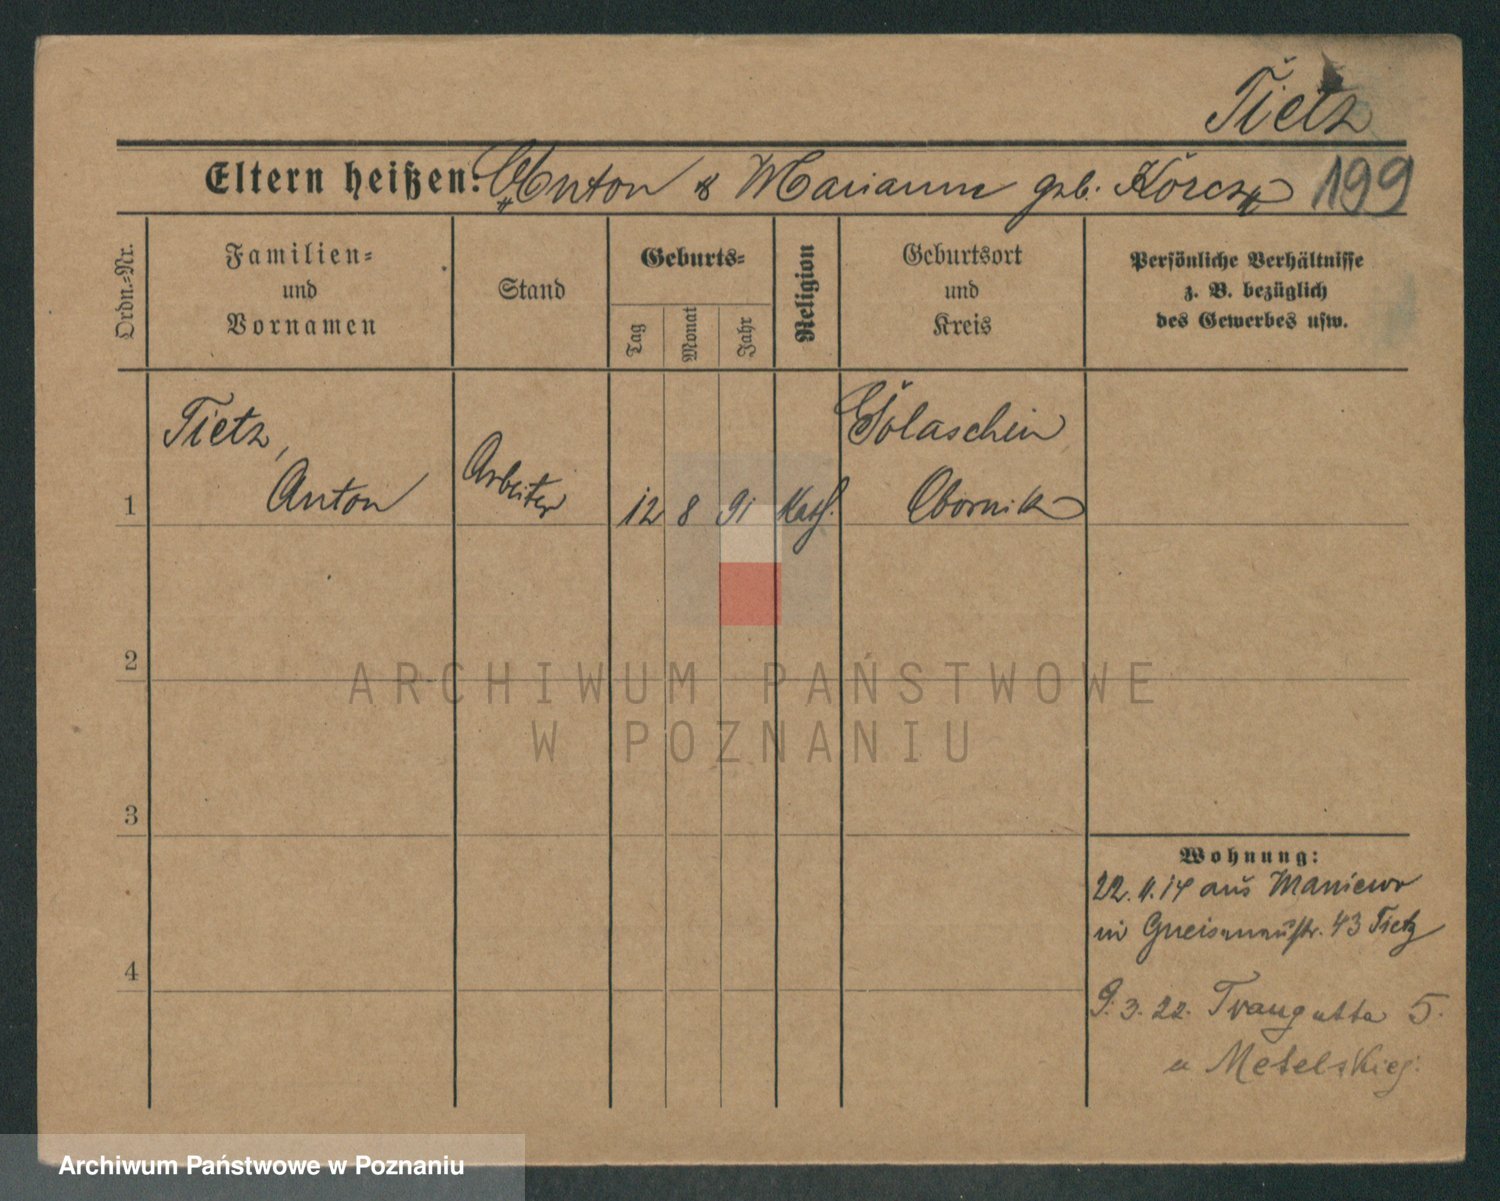 Tietz
Eltern heißen: Anton & Marianne geb. Körcz
199
Ordn.-Nr.
Familien-
und
Vornamen
Stand
Geburts-
Tag
Monat
Jahr
Religion
Geburtsort
und
Kreis
Persönliche Verhältnisse
z. B. bezüglich
des Gewerbes usw.
1
Tietz,
Anton
Arbeiter
12
8
91
Kath.
Golaschin
Obornik
2
3
4
Wohnung:
22. 11. 14 aus Maniewo
in Gneisenaustr. 43 Tietz
9. 3. 22. Traugutta 5.
u Metelskiej.
ARCHIWUM PAŃSTWOWE
W POZNANIU
Archiwum Państwowe w Poznaniu